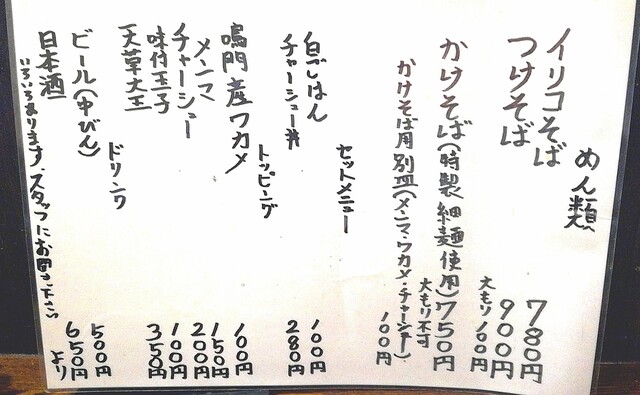 めん類
イリコそば 780円
つけそば 900円
大もり100円
かけそば(特製細麺使用)750円
大もり不可
かけそば用別皿(メンマ・ワカメ・チャーシュー)100円
セットメニュー
白ごはん 100円
チャーシュー丼 280円
トッピング
鳴門産ワカメ 100円
メンマ 150円
チャーシュー 200円
味付玉子 100円
天草大王 350円
ドリンク
ビール(中びん) 500円
日本酒 650円より
いろいろあります、スタッフにお聞き下さい